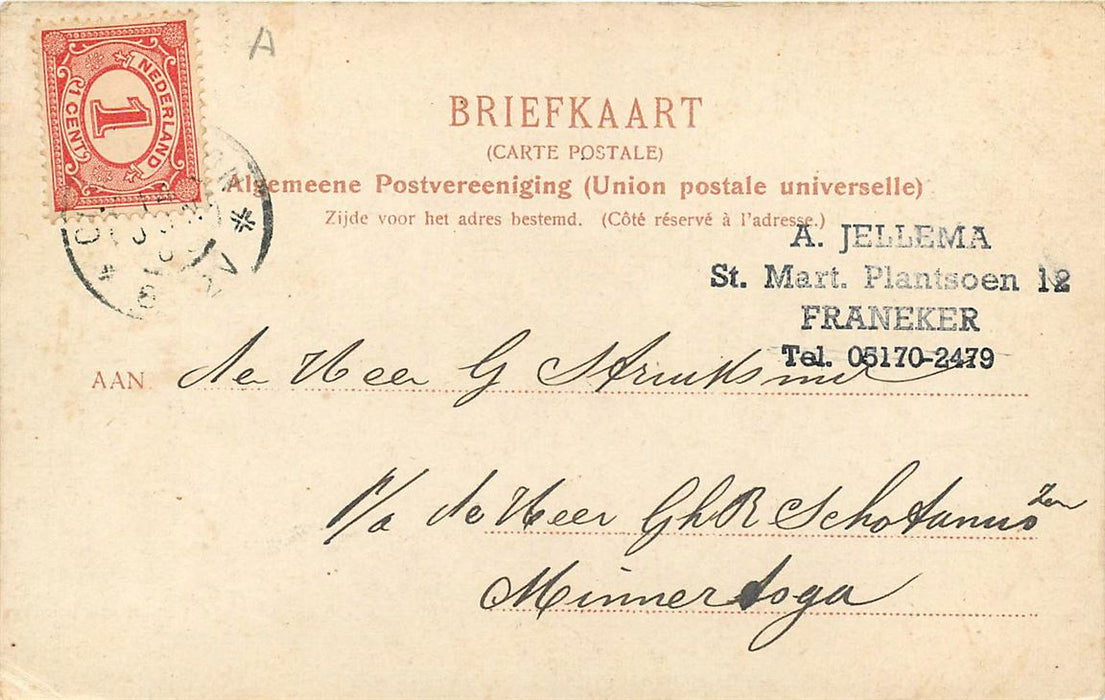 A
NEDERLAND
1
1 CENT
BRIEFKAART
(CARTE POSTALE)
Algemeene Postvereeniging (Union postale universelle)
Zijde voor het adres bestemd. (Côté réservé à l'adresse.)
A. JELLEMA
St. Mart. Plantsoen 12
FRANEKER
Tel. 05170-2479
AAN de Heer G
P/a de Heer GhR Schotanus Zn
Minnertsga